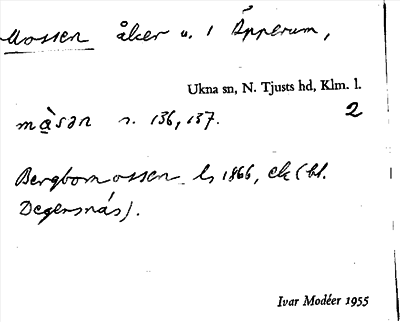 Mossen åker u. 1 Äpperum,
Ukna sn, N. Tjusts hd, Klm. l.
mɑ̀sən r. 136, 137. 2
Bergbomossen ls 1866, ek (bl.
Degersnäs).
Ivar Modéer 1955